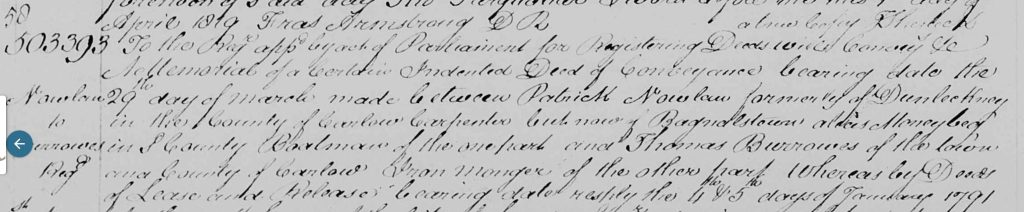 58
forenoon of said day
April 1819 Fras Armstrong D R a true Copy
503393 To the Regr appd by act of Parliament for Registering Deeds wills Convey &c
A Memorial of a Certain Indented Deed of Conveyance bearing date the
Nowlan 29th day of March made between Patrick Nowlan formerly of Dunleckney
to in the County of Carlow Carpenter but now of Bagnalstown alias Moneybeg
Burrowes in sd County Boatman of the one part and Thomas Burrowes of the town
Regd and County of Carlow Iron monger of the other part Whereas by Deeds
of Lease and Release bearing date resply the 4th & 5th days of January 1791